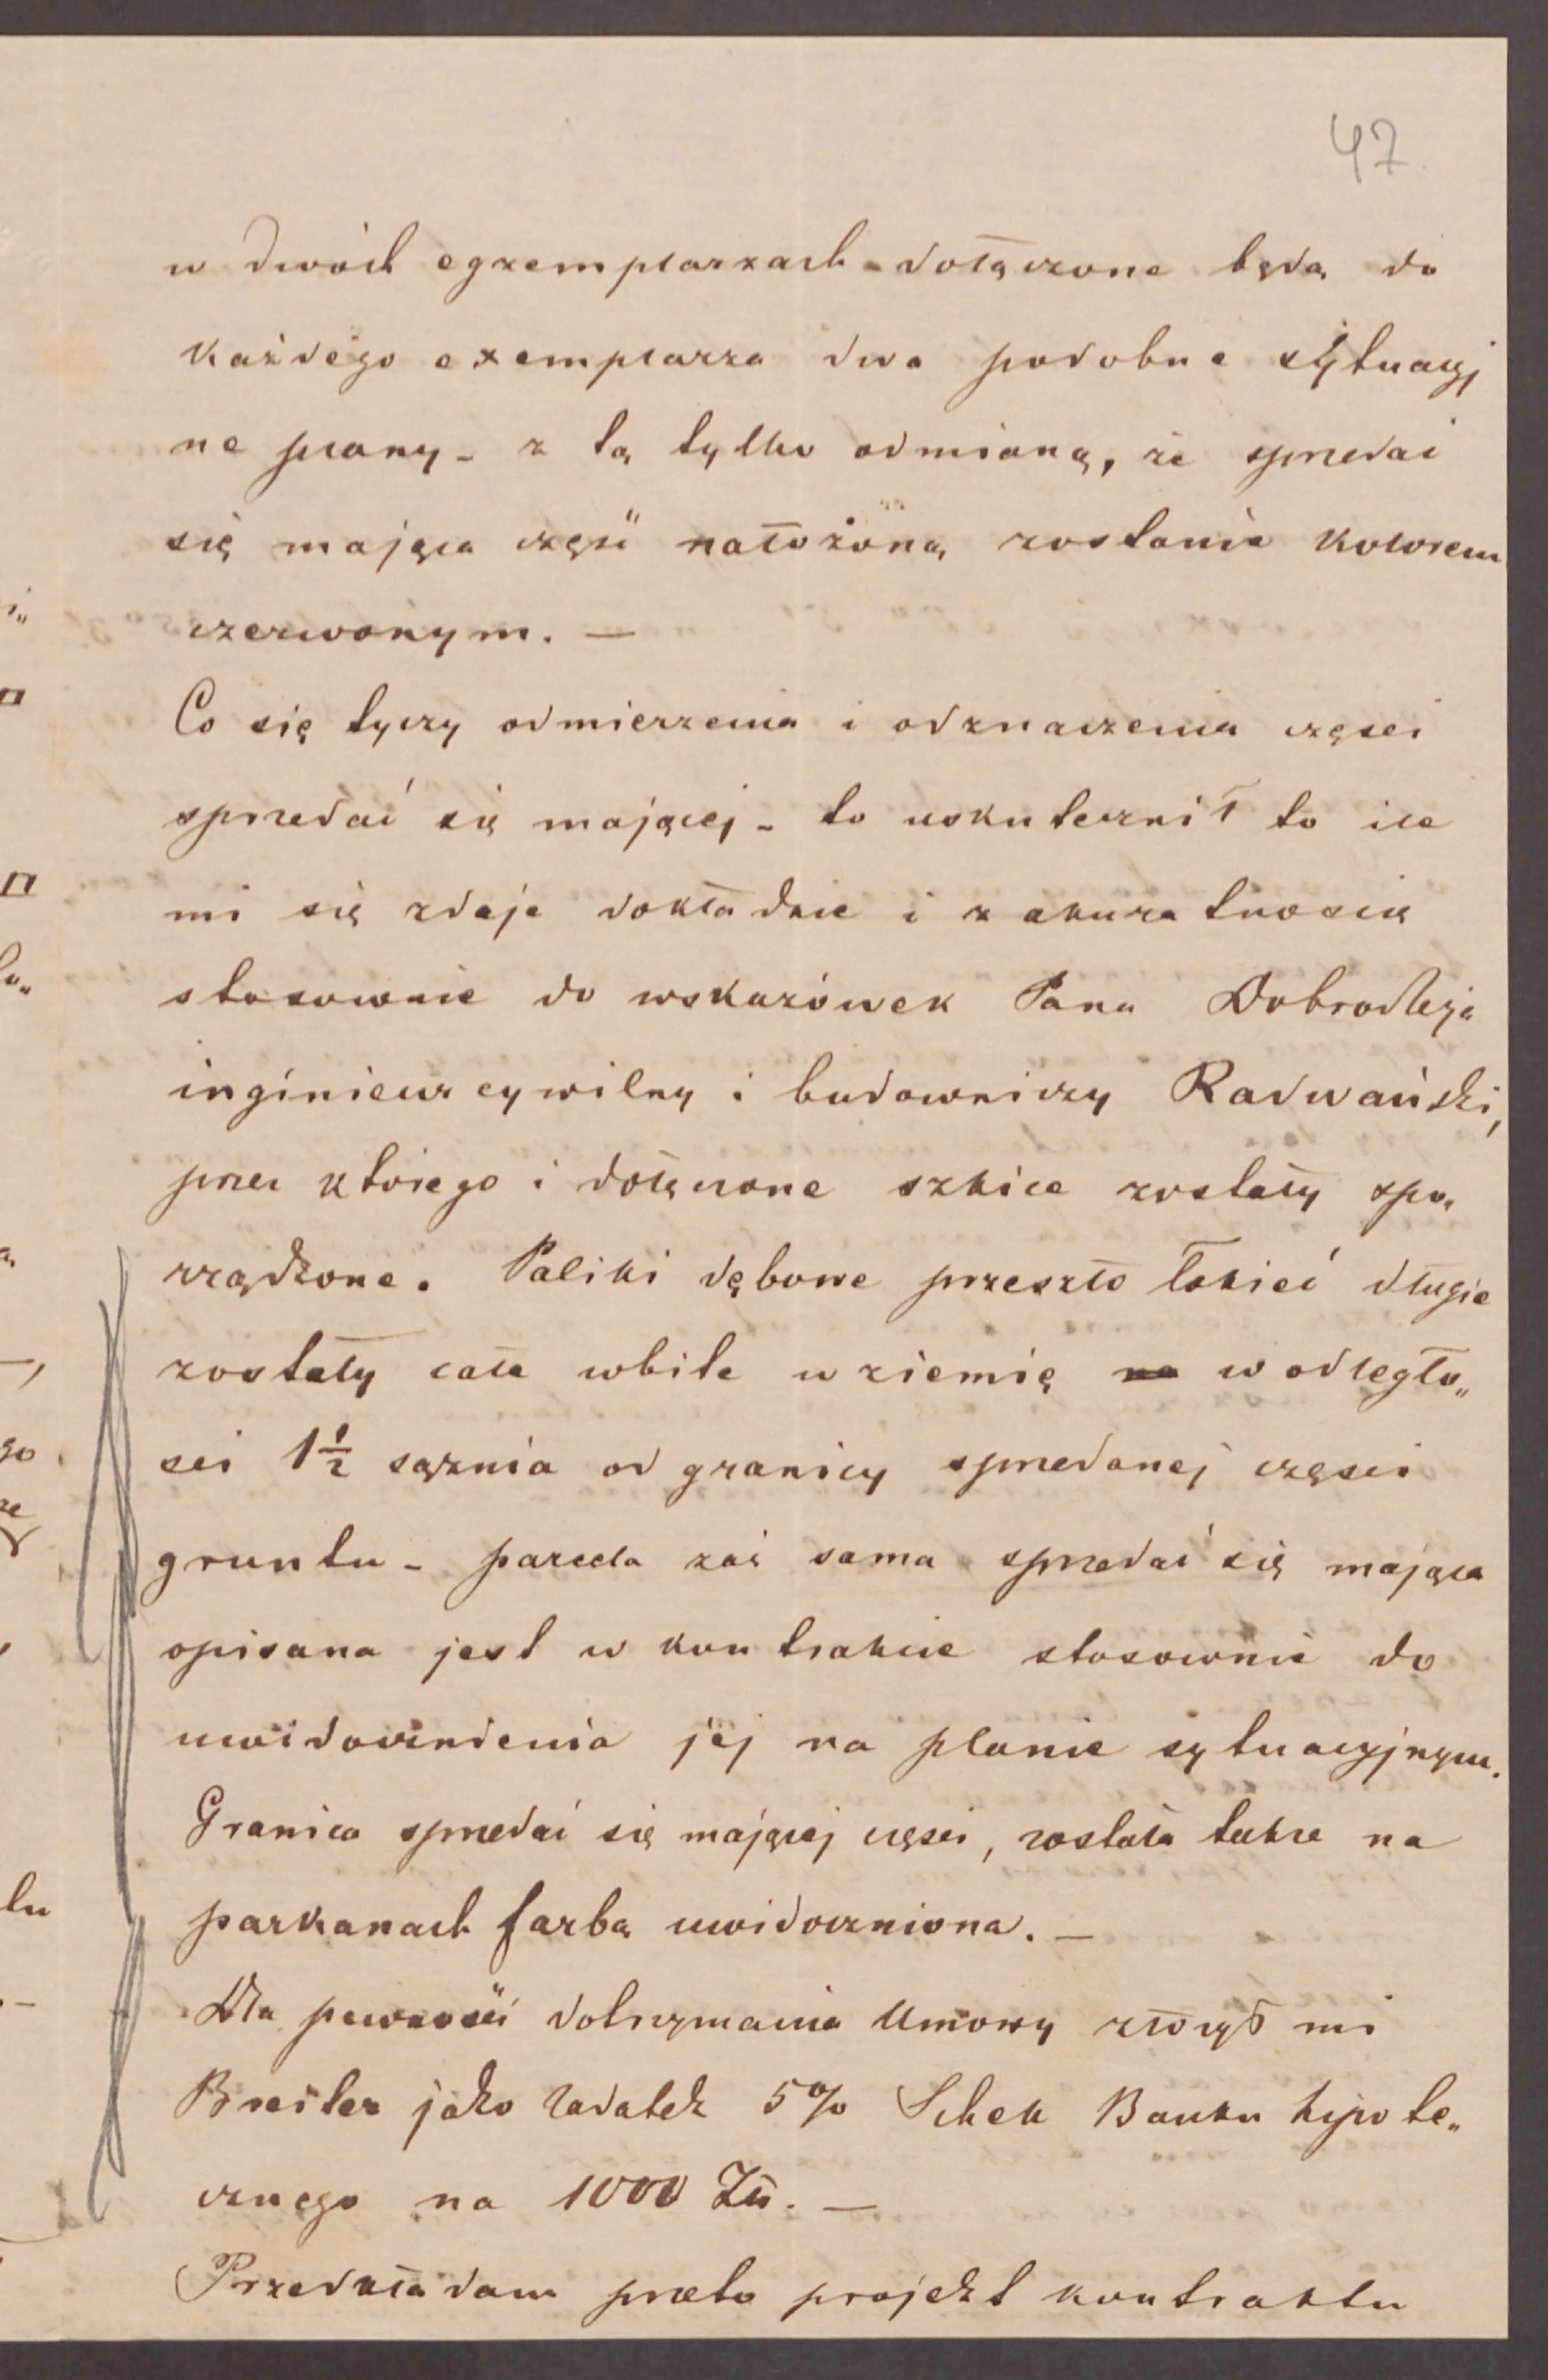 47
w dwóch egzemplarzach - dołączone będą do
każdego exemplarza dwa podobne sytuacyj
ne plany - z tą tylko odmianą, że sprzedać
się mająca część nałożoną zostanie kolorem
czerwonym. —
Co się tyczy odmierzenia i odznaczenia części
sprzedać się mającej - to uskutecznił to ile
mi się zdaje dokładnie i z akuratnością
stosownie do wskazówek Pana Dobrodzieja
inginieur cywilny i budowniczy Radwański,
przez którego i dołączone szkice zostały spo„
rządzone. Paliki dębowe przeszło łokieć długie
zostały całe wbite w ziemię na w odległo„
ści 1½ sąźnia od granicy sprzedanej części
gruntu - parcela zaś sama sprzedać się mająca
opisana jest w kontrakcie stosownie do
uwidocznienia jej na planie sytuacyjnym.
Granica sprzedać się mającej części, została także na
parkanach farbą uwidoczniona. —
Dla pewności dotrzymania Umowy złożył mi
Breiter jako zadatek 5% Schek Banku hipote„
cznego na 1000 Zł. —
Przedkładam przeto projekt kontraktu
i„
go
tu